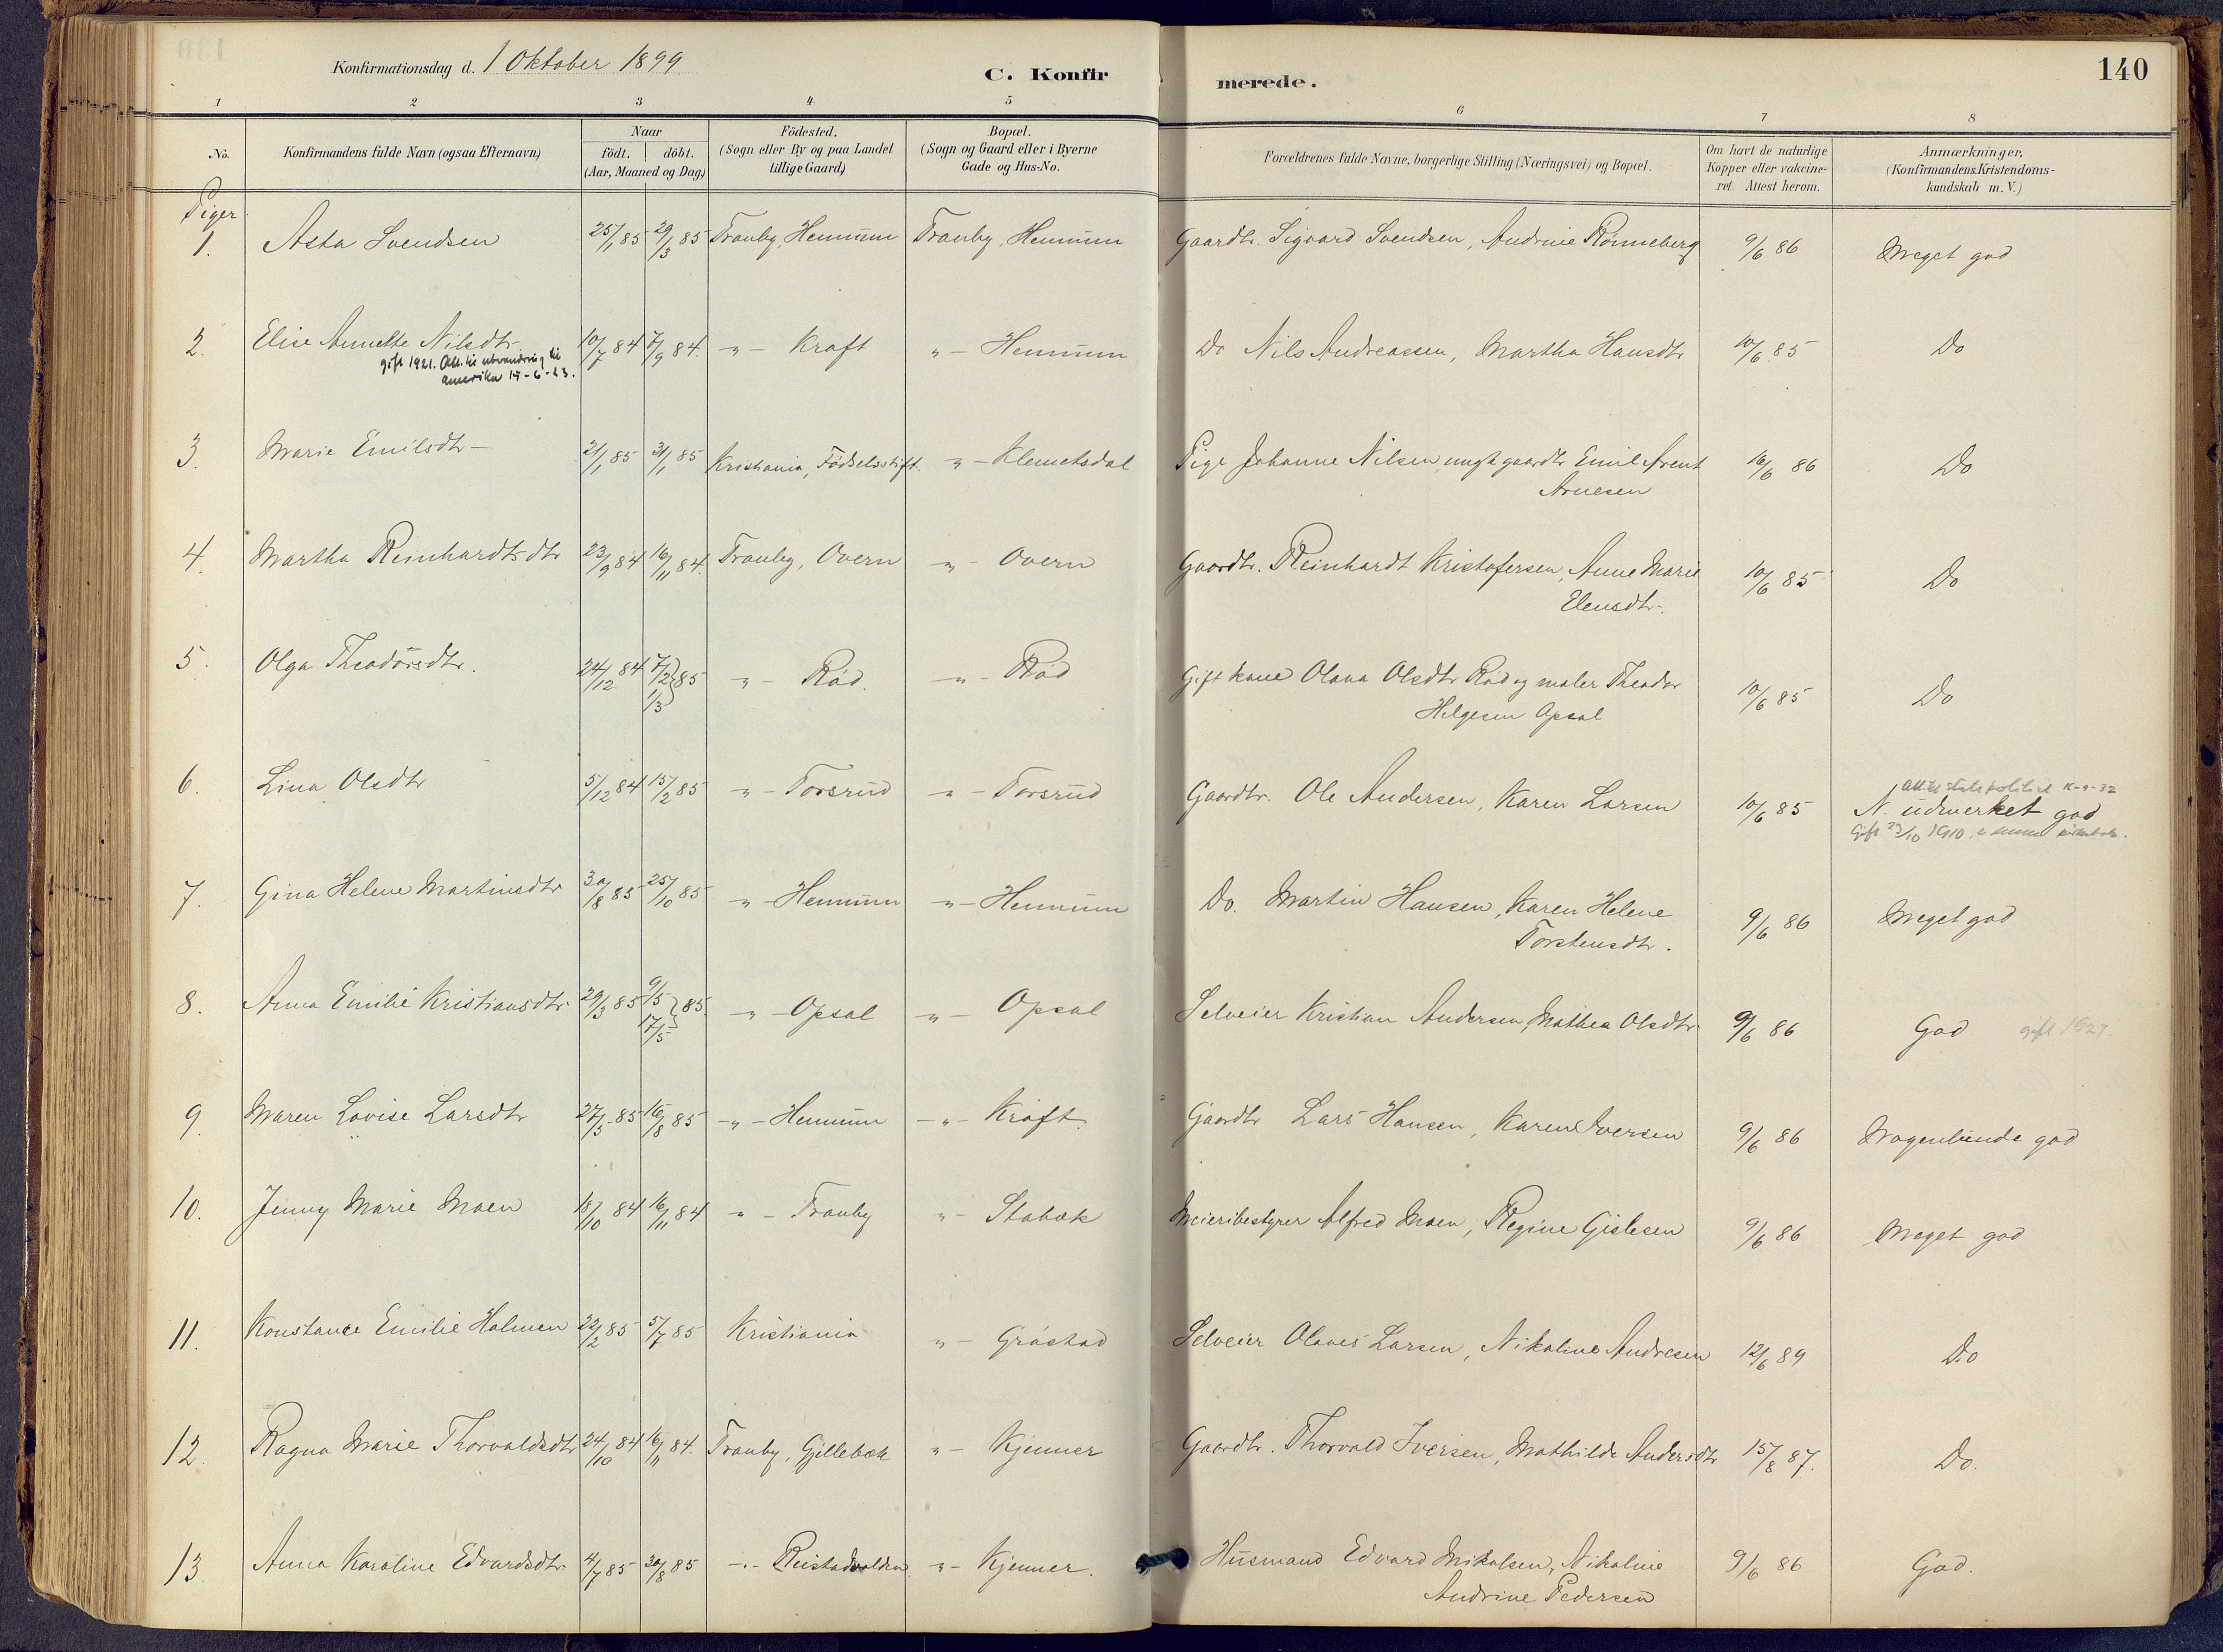 Konfirmationsdag d. 1 Oktober 1899.
C. Konfirmerede.
140
1 2 3 4 5 6 7 8
No.
Konfirmandens fulde Navn (ogsaa Efternavn)
Naar
födt. döbt.
(Aar, Maaned og Dag)
Födested.
(Sogn eller By og paa Landet
tillige Gaard)
Bopæl.
(Sogn og Gaard eller i Byerne
Gade og Hus-No.
Forældrenes fulde Navne, borgerlige Stilling (Næringsvei) og Bopæl.
Om havt de naturlige
Kopper eller vakcine-
ret. Attest herom.
Anmærkninger,
(Konfirmandens Kristendoms-
kundskab m. V.)
Piger
1. Asta Svendsen 25/1 85 29/3 85 Tranby, Hennum Tranby, Hennum Gaardbr. Sigvard Svendsen, Andrine Rønneberg 9/6 86 Meget god
2. Elise Annette Nilsdtr. 10/7 84 7/9 84. -"- Kraft "- Hennum Do Nils Andreassen, Martha Hansdtr 10/6 85 Do
gift 1921. Att. til utvandring til
Amerika 15-6-23.
3. Marie Emilsdtr 21/1 85 31/1 85 Kristiania, Fødselsstift. "- Klemetsdal Pige Johanne Nilsen, ungk gaardbr Emil Arent 16/6 86 Do
Arnesen
4. Martha Reinhardtsdtr 23/9 84 16/11 84. Tranby, Overn "- Overn Gaardbr. Reinhardt Kristofersen, Anne Marie 10/6 85 Do
Elensdtr.
5. Olga Theodorsdtr. 24/12 84 7/2 1/3 }85 "- Rød. -"- Rød Gift kone Olava Olsdtr Rød og maler Theodor 10/6 85 Do
Helgesen Opsal
6. Lina Olsdtr 5/12 84 15/2 85 "- Torsrud "- Torsrud Gaardbr. Ole Andersen, Karen Larsen 10/6 85 N. udmerket god
Gift 23/10 1910
7. Gina Helene Martinsdtr 30/8 85 25/10 85 "- Hennum "- Hennum Do. Martin Hansen, Karen Helene 9/6 86 Meget god
Torstensdtr.
8. Anna Emilie Kristiansdtr 29/3 85 9/5 17/5 }85. "- Opsal "- Opsal Selveier Kristian Andersen, Mathea Olsdtr 9/6 86 God gift 1927.
9. Maren Lovise Larsdtr 27/5 85 16/8 85 -"- Hennum -"- Kraft Gaardbr Lars Hansen, Karen Iversen 9/6 86 Nogenlunde god
10. Jenny Marie Moen 18/10 84 16/11 84 "- Tranby "- Stabæk Meieribestyrer Alfred Moen, Regine Gislesen 9/6 86 Meget god
11. Konstance Emilie Holmen 22/2 85 5/7 85 Kristiania "- Gråstad Selveier Olaves Larsen, Nikoline Andresen 12/6 89 Do
12. Ragna Marie Thorvaldsdtr 24/10 84 16/11 84. Tranby, Gjillebæk "- Kjenner Gaardbr. Thorvald Iversen, Mathilde Andersdtr 15/8 87. Do.
13. Anna Karoline Edvardsdtr 4/7 85 30/8 85 -"- Reistadvolden "- Kjenner. Husmand Edvard Mikalsen, Nikoline 9/6 86 God.
Andrine Pedersen